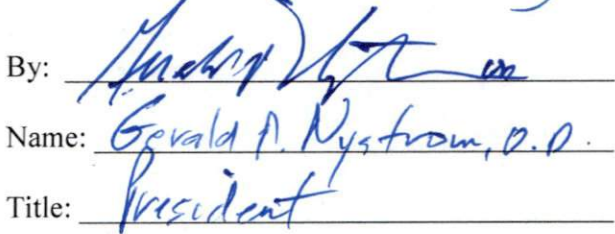 By:
Name: Gerald P. Nystrom, O.D.
Title: President